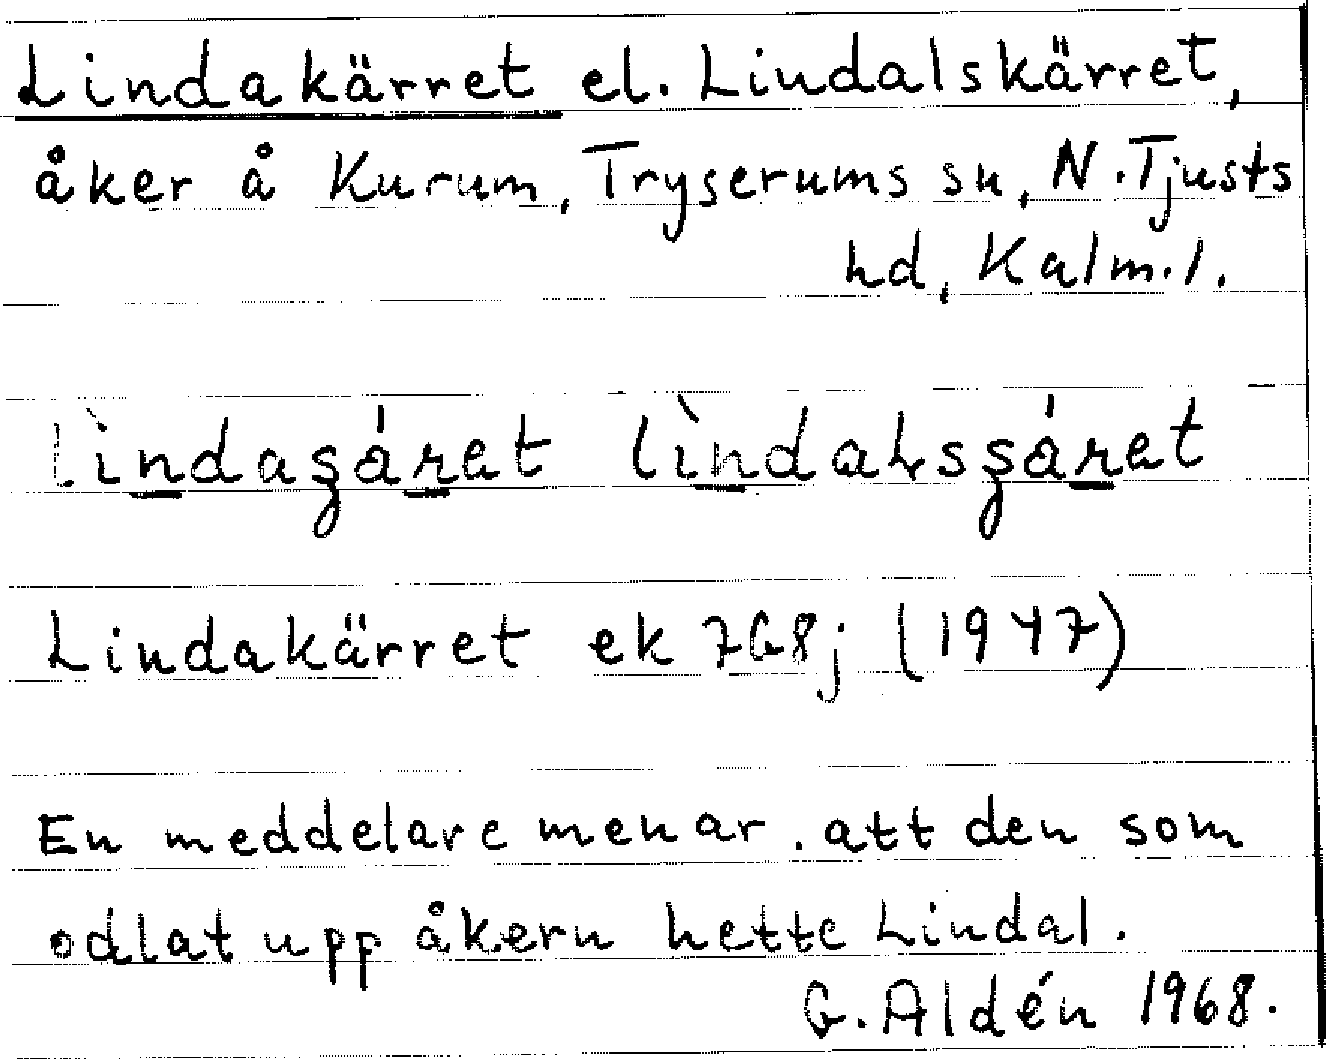 Lindakärret el. Lindalskärret,
åker å Kurum, Tryserums sn, N. Tjusts
hd, Kalm. l.
Lindakärret ek 7G8j (1947)
En meddelare menar att den som
odlat upp åkern hette Lindal.
G. Aldén 1968.